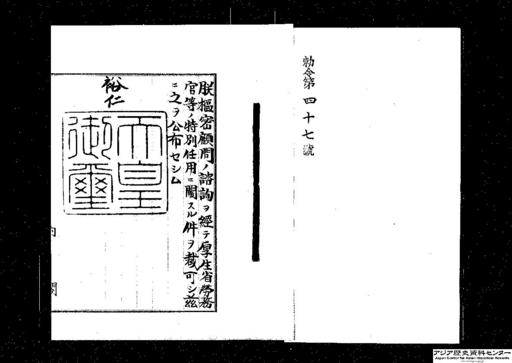 勅令第四十七號
朕樞密顧問ノ諮詢ヲ經テ厚生省勞務
官等ノ特別任用ニ關スル件ヲ裁可シ茲
ニ之ヲ公布セシム
裕仁
天皇
御璽
内閣
アジア歴史資料センター
Japan Center for Asian Historical Records